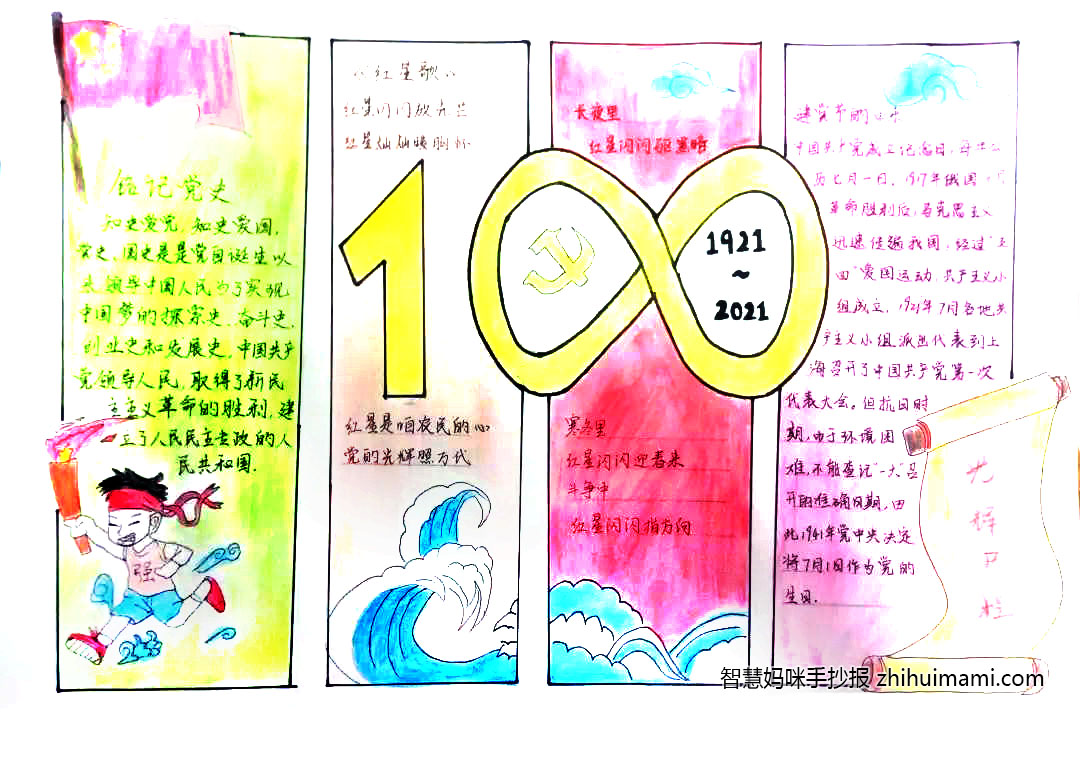 铭记党史
知史爱党，知史爱国，
党史、国史是是党自诞生以
来领导中国人民为了实现
中国梦的探索史、奋斗史、
创业史和发展史，中国共产
党领导人民，取得了新民
主主义革命的胜利，建
立了人民民主专政的人
民共和国.
强
红星歌
红星闪闪放光芒
红星灿灿暖胸怀
红星是咱农民的心
党的光辉照万代
长夜里
红星闪闪驱黑暗
寒冬里
红星闪闪迎春来
斗争中
红星闪闪指方向
100
1921
~
2021
建党节的
中国共产党成立纪念日，每
历七月一日，1917年俄国十月
革命胜利后，马克思主义
迅速传遍我国，经过“五
四”爱国运动，共产主义小
组成立，1921年7月各地共
产主义小组派出代表到上
海召开了中国共产党第一次
代表大会。但抗日时
期，由于环境困
难，不能查记“一大”召
开的准确日期，由
此1941年党中央决定
将7月1日作为党的
生日.
光
辉
历
程
智慧妈咪手抄报 zhihuimami.com